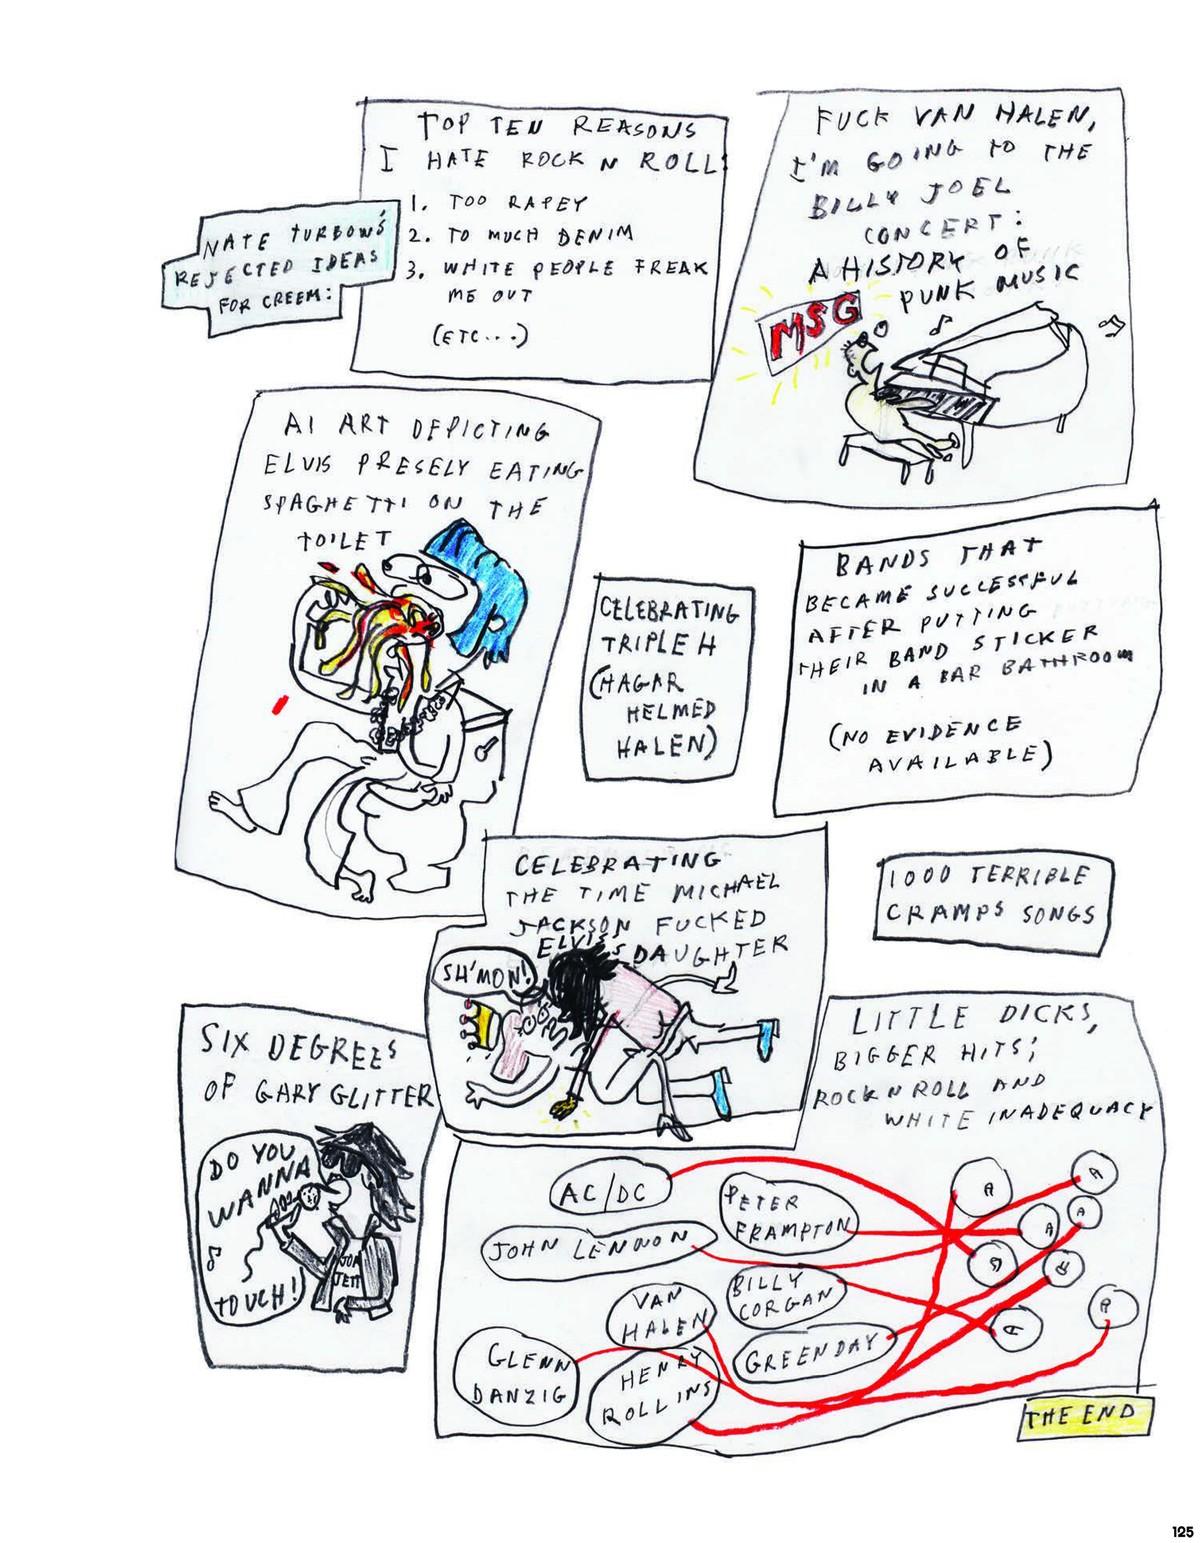 NATE TURBOW'S
REJECTED IDEAS
FOR CREEM:
TOP TEN REASONS
I HATE ROCK N ROLL:
1. TOO RAPEY
2. TO MUCH DENIM
3. WHITE PEOPLE FREAK
ME OUT
(ETC...)
FUCK VAN HALEN,
I'M GOING TO THE
BILLY JOEL
CONCERT:
A HISTORY OF
PUNK MUSIC
MSG
AI ART DEPICTING
ELVIS PRESELY EATING
SPAGHETTI ON THE
TOILET
CELEBRATING
TRIPLE H
(HAGAR
HELMED
HALEN)
BANDS THAT
BECAME SUCCESSFUL
AFTER PUTTING
THEIR BAND STICKER
IN A BAR BATHROOM
(NO EVIDENCE
AVAILABLE)
CELEBRATING
THE TIME MICHAEL
JACKSON FUCKED
ELVIS'S DAUGHTER
SH'MON!
1000 TERRIBLE
CRAMPS SONGS
SIX DEGREES
OF GARY GLITTER
DO YOU
WANNA
TOUCH!
JOA
JETT
LITTLE DICKS,
BIGGER HITS;
ROCK N ROLL AND
WHITE INADEQUACY
AC/DC
PETER
FRAMPTON
JOHN LENNON
BILLY
CORGAN
VAN
HALEN
GREENDAY
GLENN
DANZIG
HENRY
ROLLINS
THE END
125